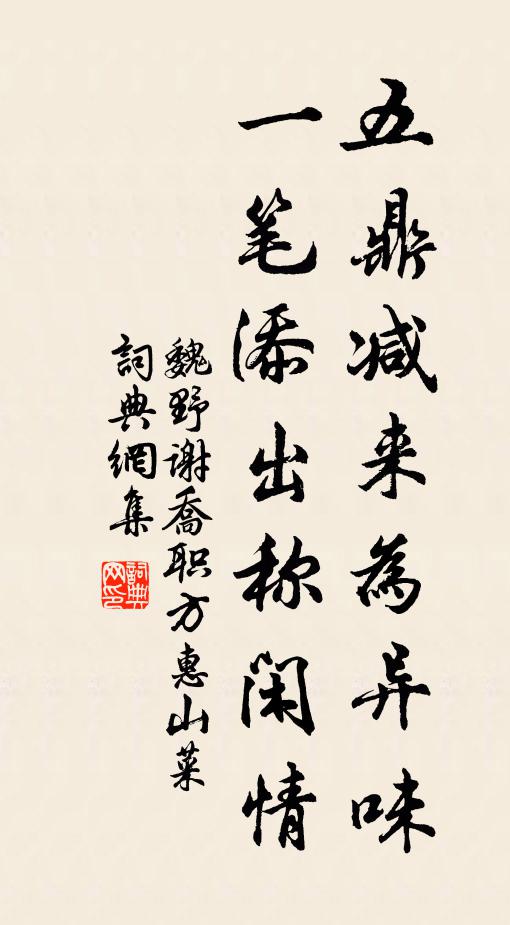 五鼎减来為异味
一笔添出称闲情
魏野谢喬职方惠山菜
詞典網集
詞典网印